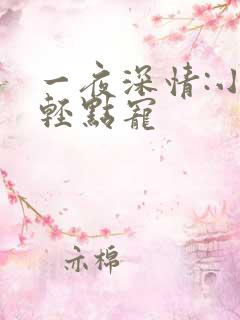 一夜深情:小
輕點寵
示棉